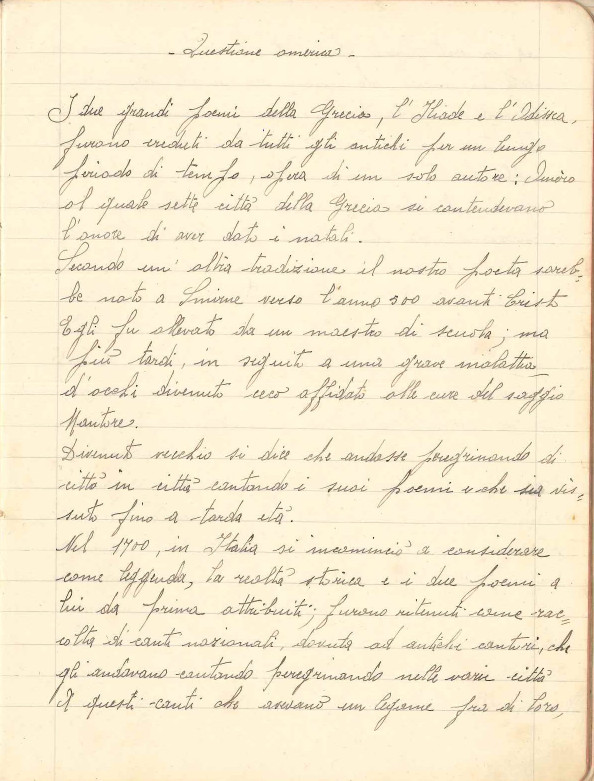 - Questione omerica -
I due grandi poemi della Grecia, l'Iliade e l'Odissea,
furono creduti da tutti gli antichi per un lungo
periodo di tempo, opera di un solo autore: Omèro
al quale sette città della Grecia si contendevano
l'onore di aver dato i natali.
Secondo un'altra tradizione il nostro poeta sareb=
be nato a Smirne verso l'anno 900 avanti Crist
Egli fu allevato da un maestro di scuola; ma
più tardi, in seguito a una grave malattia
d'occhi divenuto ceco affidato alle cure del saggio
Mentore.
Divenuto vecchio si dice che andasse peregrinando di
città in città cantando i suoi poemi e che sia vis=
suto fino a tarda età.
Nel 1700, in Italia si incominciò a considerare
come leggenda, la realtà storica e i due poemi a
lui da prima attribuiti; furono ritenuti come rac=
colta di canti nazionali, dovuta ad antichi cantori, che
gli andavano cantando peregrinando nelle varie città
A questi canti che avevano un legame fra di loro,